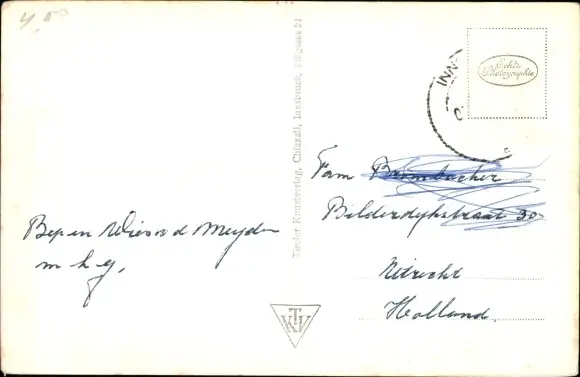 4,50
INN
Echte
Photographie
Tiroler Kunstverlag, Chizzali, Innsbruck,
Fam Brombacher
Bilderdijkstraat 30
Utrecht
Holland.
Bep en Wies v d Meyde
m h g.
TKV